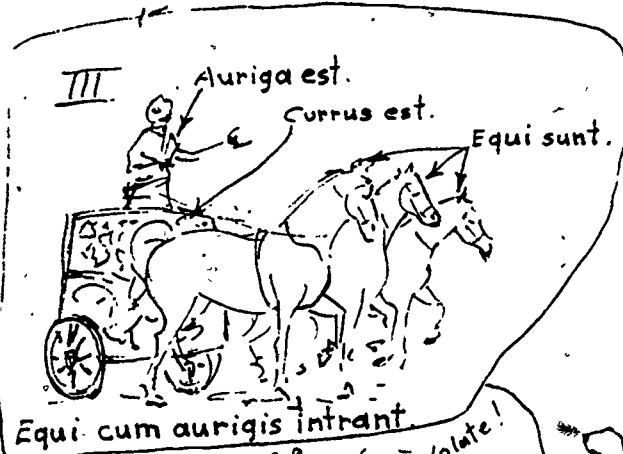 III
Auriga est.
Currus est.
Equi sunt.
Equi cum aurigis intrant.